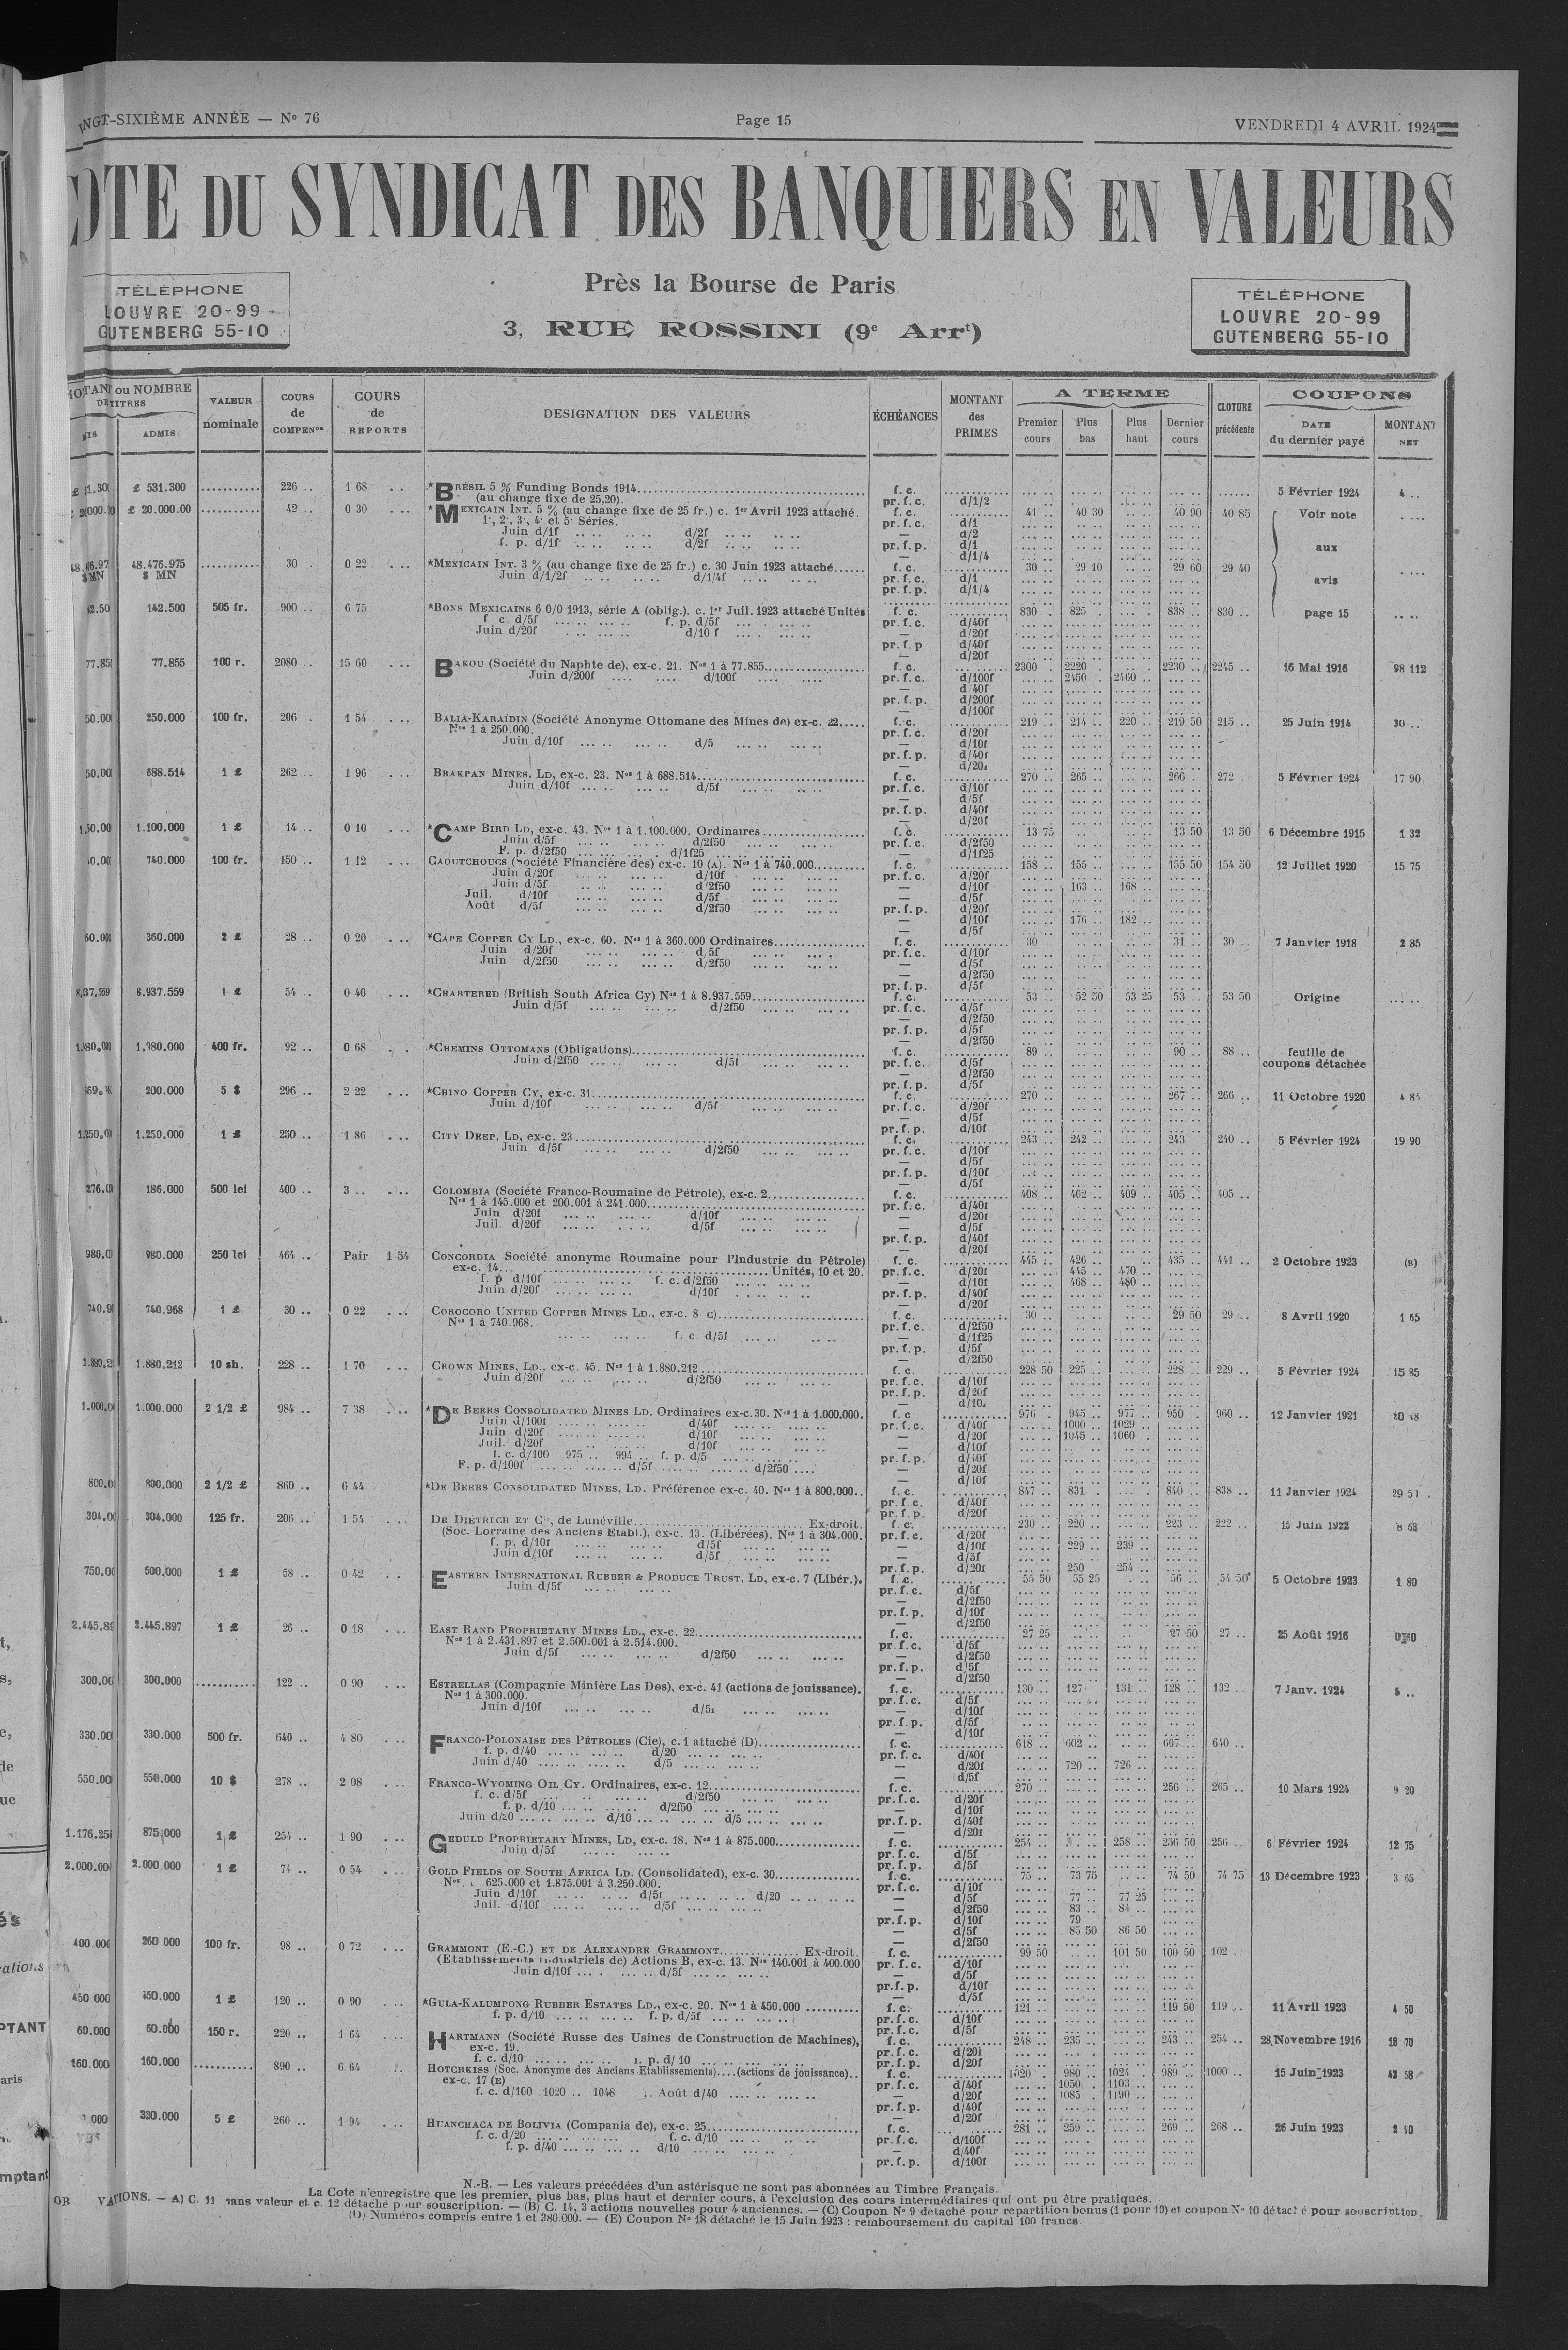 NGT-SIXIÈME ANNÉE — Nº 76
Page 15
VENDREDI 4 AVRIL 1924
OTE DU SYNDICAT DES BANQUIERS EN VALEURS
TÉLÉPHONE
LOUVRE 20-99
GUTENBERG 55-10
Près la Bourse de Paris
3, RUE ROSSINI (9e Arrt)
TÉLÉPHONE
LOUVRE 20-99
GUTENBERG 55-10
ou NOMBRE
TITRES
ADMIS
VALEUR nominale
COURS de COMPENon
COURS de REPORTS
DESIGNATION DES VALEURS
ÉCHÉANCES
MONTANT des PRIMES
A TERME
Premier cours
Plus bas
Plus haut
Dernier cours
CLOTURE précédente
COUPONS
DATE du dernier payé
MONTANT NET
£ 531.300 ........... 226 .. 1 68 *BRÉSIL 5 % Funding Bonds 1914 f. c. 5 Février 1924 4 ..
(au change fixe de 25,20). pr. f. c. d/1/2
£ 20.000.00 ........... 42 .. 0 30 *MEXICAIN INT. 5 % (au change fixe de 25 fr.) c. 1er Avril 1923 attaché. f. c. 41 .. 40 30 40 90 40 85 Voir note
1', 2', 3', 4' et 5' Séries. pr. f. c. d/1
Juin d/1f d/2f — d/2
f. p. d/1f d/2f pr. f. p. d/1
— d/1/4
aux
48.476.975 $ MN ........... 30 . 0 22 *MEXICAIN INT. 3 % (au change fixe de 25 fr.) c. 30 Juin 1923 attaché f. c. 30 .. 29 10 29 60 29 40
Juin d/1/2f d/1/4f pr. f. c. d/1
pr. f. p. d/1/4
avis
142.500 505 fr. 900 .. 6 75 *BONS MEXICAINS 6 0/0 1913, série A (oblig.). c. 1er Juil. 1923 attaché Unités f. c. 830 . 825 . 838 .. 830 .. page 15
f c. d/5f f. p. d/5f pr. f. c. d/40f
Juin d/20f d/10 f — d/20f
pr. f. p d/40f
— d/20f
77.855 100 r. 2080 .. 15 60 BAKOU (Société du Naphte de), ex-c. 21. Nos 1 à 77.855 f. c. 2300 . 2220 . 2230 .. 2245 .. 16 Mai 1916 98 112
Juin d/200f d/100f pr. f. c. d/100f 2450 . 2460 ..
— d 40f
pr. f. p. d/200f
— d/100f
250.000 100 fr. 206 . 1 54 BALIA-KARAÏDIN (Société Anonyme Ottomane des Mines de) ex-c. 22 f. c. 219 .. 214 .. 220 .. 219 50 215 .. 25 Juin 1914 30 ..
Nos 1 à 250.000. pr. f. c. d/20f
Juin d/10f d/5 — d/10f
pr. f. p. d/40f
— d/20
688.514 1 £ 262 .. 1 96 BRAKPAN MINES, LD, ex-c. 23. Nos 1 à 688.514 f. c. 270 .. 265 .. 266 . 272 . 5 Février 1924 17 90
Juin d/10f d/5f pr. f. c. d/10f
— d/5f
pr. f. p. d/40f
— d/20f
1.100.000 1 £ 14 .. 0 10 *CAMP BIRD LD, ex-c. 43. Nos 1 à 1.100.000. Ordinaires f. c. 13 75 13 50 13 50 6 Décembre 1915 1 32
Juin d/5f d/2f50 pr. f. c. d/2f50
F. p. d/2f50 d/1f25 — d/1f25
740.000 100 fr. 150 .. 1 12 CAOUTCHOUCS (Société Financière des) ex-c. 10 (A). Nos 1 à 740.000 f. c. 158 .. 155 .. 155 50 154 50 12 Juillet 1920 15 75
Juin d/20f d/10f pr. f. c. d/20f
Juin d/5f d/2f50 — d/10f 163 .. 168 ..
Juil. d/10f d/5f — d/5f
Août d/5f d/2f50 pr. f. p. d/20f
— d/10f 176 .. 182 ..
— d/5f
360.000 2 £ 28 .. 0 20 *CAPE COPPER CY LD., ex-c. 60. Nos 1 à 360.000 Ordinaires f. c. 30 31 . 30 .. 7 Janvier 1918 2 85
Juin d/20f d/5f pr. f. c. d/10f
Juin d/2f50 d/2f50 — d/5f
— d/2f50
pr. f. p. d/5f
8.937.559 1 £ 54 .. 0 40 *CHARTERED (British South Africa Cy) Nos 1 à 8.937.559 f. c. 53 .. 52 50 53 25 53 .. 53 50 Origine
Juin d/5f d/2f50 pr. f. c. d/5f
— d/2f50
pr. f. p. d/5f
— d/2f50
1.980.000 400 fr. 92 .. 0 68 *CHEMINS OTTOMANS (Obligations) f. c. 89 .. 90 .. 88 .. feuille de
Juin d/2f50 d/5f pr. f. c. d/5f coupons détachée
— d/2f50
pr. f. p. d/5f
200.000 5 $ 296 .. 2 22 *CHINO COPPER CY, ex-c. 31 f. c. 270 .. 267 .. 266 .. 11 Octobre 1920 4 85
Juin d/10f d/5f pr. f. c. d/20f
— d/5f
pr. f. p. d/10f
1.250.000 1 £ 250 .. 1 86 CITY DEEP, LD, ex-c. 23 f. c. 243 .. 242 .. 243 240 .. 5 Février 1924 19 90
Juin d/5f d/2f50 pr. f. c. d/10f
— d/5f
pr. f. p. d/10f
— d/5f
186.000 500 lei 400 .. 3 .. COLOMBIA (Société Franco-Roumaine de Pétrole), ex-c. 2 f. c. 408 .. 402 .. 409 .. 405 .. 405 ..
Nos 1 à 145.000 et 200.001 à 241.000 pr. f. c. d/40f
Juin d/20f d/10f — d/20f
Juil. d/20f d/5f — d/5f
pr. f. p. d/40f
— d/20f
980.000 250 lei 464 .. Pair 1 54 CONCORDIA Société anonyme Roumaine pour l'Industrie du Pétrole) f. c. 445 .. 426 .. 435 .. 441 .. 2 Octobre 1923 (B)
ex-c. 14 Unités, 10 et 20. pr. f. c. d/20f 445 .. 470 ..
f. p d/10f f. c. d/2f50 — d/10f 468 .. 480 ..
Juin d/20f d/10f pr. f. p. d/40f
— d/20f
740.968 1 £ 30 .. 0 22 COROCORO UNITED COPPER MINES LD., ex-c. 8 c) f. c. 30 .. 29 50 29 .. 8 Avril 1920 1 65
Nos 1 à 740.968. pr. f. c. d/2f50
f. c. d/5f — d/1f25
pr. f. p. d/5f
— d/2f50
1.880.212 10 sh. 228 .. 1 70 CROWN MINES, LD., ex-c. 45. Nos 1 à 1.880.212 f. c. 228 50 225 .. 228 .. 229 .. 5 Février 1924 15 85
Juin d/20f d/2f50 pr. f. c. d/10f
pr. f. p. d/20f
— d/10
1.000.000 2 1/2 £ 984 .. 7 38 *DE BEERS CONSOLIDATED MINES LD. Ordinaires ex-c.30. Nos 1 à 1.000.000. f. c 976 . 945 .. 977 .. 950 . 960 .. 12 Janvier 1921
Juin d/100f d/40f pr. f. c. d/40f 1000 .. 1029 ..
Juin d/20f d/10f — d/20f 1045 .. 1060 ..
Juil. d/20f d/10f — d/10f
f. c. d/100 975 .. 994 .. f. p. d/5 pr. f. p. d/40f
F. p. d/100f d/5f d/2f50 — d/20f
— d/10f
800.000 2 1/2 £ 860 .. 6 44 *DE BEERS CONSOLIDATED MINES, LD. Préférence ex-c. 40. Nos 1 à 800.000 f. c. 847 .. 831 . 840 .. 838 .. 11 Janvier 1924
pr. f. c. d/40f
pr. f. p. d/20f
304.000 125 fr. 206 .. 1 54 DE DIÉTRICH ET Cie, de Lunéville Ex-droit. f. c. 230 .. 220 .. 223 .. 222 .. 15 Juin 1922
(Soc. Lorraine des Anciens Etabl.), ex-c. 13. (Libérées). Nos 1 à 304.000. pr. f. c. d/20f
f. p. d/10f d/5f — d/10f 229 .. 239 ..
Juin d/10f d/5f — d/5f
pr. f. p. d/20f 250 254 ..
500.000 1 £ 58 .. 0 42 EASTERN INTERNATIONAL RUBBER & PRODUCE TRUST, LD, ex-c. 7 (Libér.). f. c. 55 50 55 25 56 .. 54 50 5 Octobre 1923 1 80
Juin d/5f pr. f. c. d/5f
— d/2f50
pr. f. p. d/10f
— d/2f50
2.445.897 1 £ 26 .. 0 18 EAST RAND PROPRIETARY MINES LD., ex-c. 22 f. c. 27 25 27 50 27 .. 25 Août 1916
Nos 1 à 2.431.897 et 2.500.001 à 2.514.000. pr. f. c. d/5f
Juin d/5f d/2f50 — d/2f50
pr. f. p. d/5f
— d/2f50
300.000 ........... 122 .. 0 90 ESTRELLAS (Compagnie Minière Las Dos), ex-c. 41 (actions de jouissance). f. c. 130 .. 127 131 .. 128 .. 132 .. 7 Janv. 1924 5 ..
Nos 1 à 300.000. pr. f. c. d/5f
Juin d/10f d/5 — d/10f
pr. f. p. d/5f
— d/10f
330.000 500 fr. 640 .. 4 80 FRANCO-POLONAISE DES PÉTROLES (Cie), c. 1 attaché (D) f. c. 618 .. 602 .. 607 .. 640 ..
f. p. d/40 d/20 pr. f. c. d/40f
Juin d/40 d/5 — d/20f 720 .. 726 ..
— d/5f
550.000 10 $ 278 .. 2 08 FRANCO-WYOMING OIL CY. Ordinaires, ex-c. 12 f. c. 270 .. 256 .. 265 .. 10 Mars 1924 9 20
f. c. d/5f d/2f50 pr. f. c. d/20f
f. p. d/10 d/2f50 — d/10f
Juin d/20 d/10 d/5 pr. f. p. d/40f
— d/20f
875.000 1 £ 254 .. 1 90 GEDULD PROPRIETARY MINES, LD, ex-c. 18. Nos 1 à 875.000 f. c. 254 .. 258 .. 256 50 256 . 6 Février 1924 12 75
Juin d/5f pr. f. c. d/5f
pr. f. p. d/5f
2.000.000 1 £ 74 .. 0 54 GOLD FIELDS OF SOUTH AFRICA LD. (Consolidated), ex-c. 30 f. c. 75 .. 73 75 74 50 74 75 13 Décembre 1923 3 65
625.000 et 1.875.001 à 3.250.000. pr. f. c. d/10f
Juin d/10f d/5f d/20 — d/5f 77 .. 77 25
Juil. d/10f d/5f — d/2f50 83 .. 84 ..
pr. f. p. d/10f 79
— d/5f 85 50 86 50
— d/2f50
260 000 100 fr. 98 .. 0 72 GRAMMONT (E.-C.) ET DE ALEXANDRE GRAMMONT Ex-droit. f. c. 99 50 101 50 100 50 102
(Etablissements industriels de) Actions B, ex-c. 13. Nos 140.001 à 400.000 pr. f. c. d/10f
Juin d/10f d/5f — d/5f
pr.f. p. d/10f
— d/5f
450.000 1 £ 120 .. 0 90 *GULA-KALUMPONG RUBBER ESTATES LD., ex-c. 20. Nos 1 à 450.000 f. c. 121 .. 119 50 119 .. 11 Avril 1923 4 50
f. p. d/10 f. p. d/5f pr. f. c. d/10f
pr. f. c. d/5f
60.000 150 r. 220 .. 1 64 HARTMANN (Société Russe des Usines de Construction de Machines), f. c. 248 .. 235 .. 243 .. 254 .. 28 Novembre 1916 18 70
ex-c. 19. pr. f. c. d/20f
f. c. d/10 p. d/10 pr. f. p. d/20f
160.000 ........... 890 .. 6 64 HOTCHKISS (Soc. Anonyme des Anciens Etablissements)....(actions de jouissance).. f. c. 1020 . 980 .. 1024 . 989 .. 1000 .. 15 Juin 1923
ex-c. 17 (E) pr. f. c. d/40f 1050 .. 1103 ..
f. c. d/100 1020 .. 1048 .. Août d/40 — d/20f 1085 . 1190 ..
pr. f. p. d/40f
— d/20f
320.000 5 £ 260 .. 1 94 HUANCHACA DE BOLIVIA (Compania de), ex-c. 25 f. c. 281 .. 259 .. 269 .. 268 .. 26 Juin 1923
f. c. d/20 f. c. d/10 pr. f. c. d/100f
f. p. d/40 d/10 — d/40f
pr. f. p. d/100f
N.-B. — Les valeurs précédées d'un astérisque ne sont pas abonnées au Timbre Français.
La Cote n'enregistre que les premier, plus bas, plus haut et dernier cours, à l'exclusion des cours intermédiaires qui ont pu être pratiqués.
VATIONS. — A) C. 11 sans valeur et c. 12 détaché pour souscription. — (B) C. 14, 3 actions nouvelles pour 4 anciennes. — (C) Coupon Nº 9 détaché pour répartition bonus (1 pour 10) et coupon Nº 10 détaché pour souscription.
(D) Numéros compris entre 1 et 380.000. — (E) Coupon Nº 18 détaché le 15 Juin 1923 : remboursement du capital 100 francs